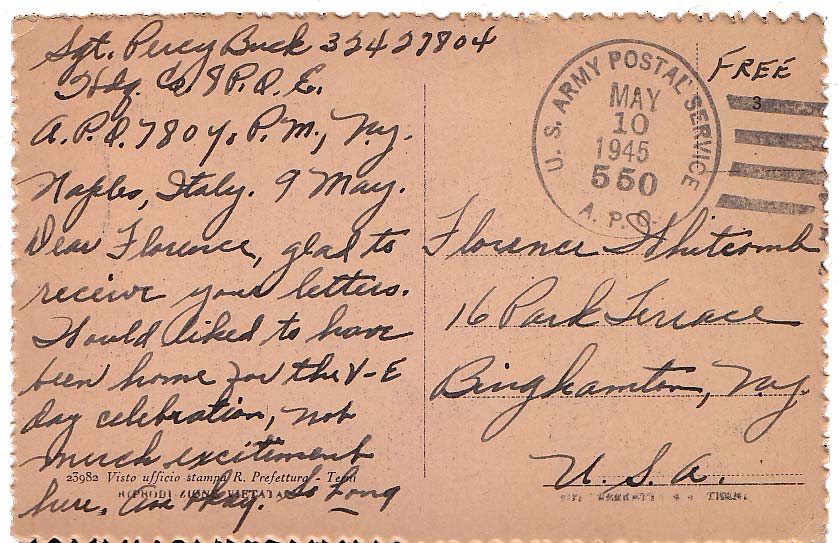 Sgt. Percy Buck 32427804
Hdq. Co. 8 P.O.E.
A.P.O. 780 %. P.M., N.Y.
Naples, Italy. 9 May.
Dear Florence, glad to
receive your letters.
Would liked to have
been home for the V-E
day celebration, not
much excitement
here. Am okay. So Long
23982 Visto ufficio stampa R. Prefettura - Terni
RIPRODUZIONE VIETATA
U. S. ARMY POSTAL SERVICE
MAY
10
1945
550
A. P. O.
FREE
3
Florence Whitcomb
16 Park Terrace
Binghamton, N.Y.
U.S.A.